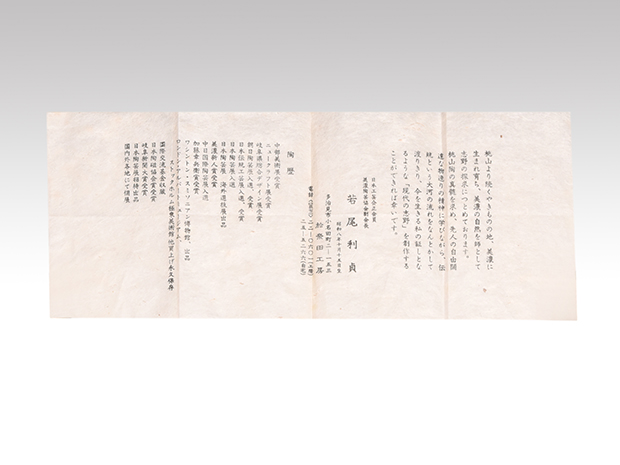 桃山より続くやきものの地、美濃に
生まれ育ち、美濃の自然を師として
志野の探求につとめております。
桃山陶の真髄を求め、先人の自由闊
達な物造りの精神に学びながら、伝
統という大河の流れをなんとかして
渡りきり、今を生きる私の証しとな
るような「現代の志野」を創作する
ことができれば幸いです。
日本工芸会正会員
美濃陶芸協会副会長
若尾利貞
昭和八年
多治見市小名田町
工房
陶歴
中部美術展受賞
ニュークラフト展受賞
岐阜県総合デザイン展受賞
朝日陶芸展入選、受賞
日本伝統工芸展入選、受賞
日本陶芸展入選
日本陶芸展・海外巡往展出品
中日国際陶芸展入選
美濃新人賞受賞
加藤幸兵衛賞受賞
ワシントン・スミソニアン博物館、出品
ロンドン・アルバートミュージアム、
ストックホルム極東美術館 他買上げ永久保存
国際交流基金収蔵
日本陶磁協会賞受賞
岐阜新聞大賞受賞
日本陶芸展招待出品
国内外各地にて個展